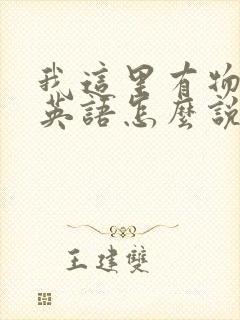 我這里有物
英語怎麼說
王建雙